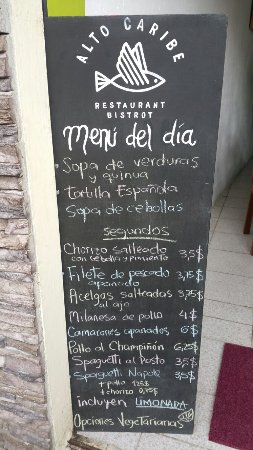 ALTO CARIBE
RESTAURANT
BISTROT
Menú del día
Sopa de verduras
y quinua
Tortilla Española
Sopa de cebollas
segundos
Chorizo salteado 3,5$
con cebolla y pimiento
Filete de pescado 3,75$
apanado
Acelgas salteadas 3,75$
al ajo
Milanesa de pollo 4$
Camarones apanados 6$
Pollo al Champiñón 6,25$
Spaguetti al Pesto 3,5$
Spaguetti Napole 3,5$
+ pollo 1,25$
+ chorizo 0,75$
incluyen LIMONADA
Opciones Vegetarianas